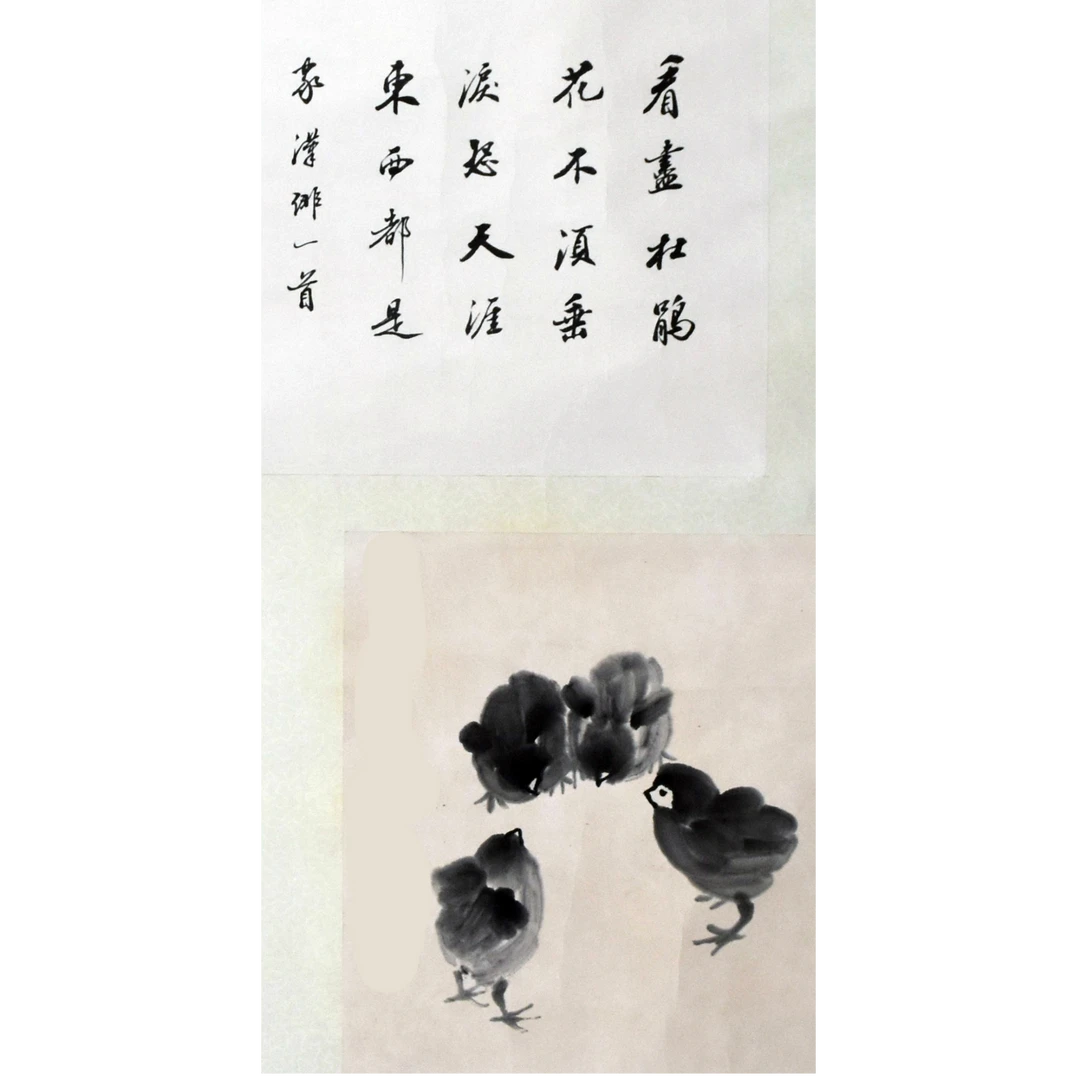 看盡杜鵑
花不須垂
淚怨天涯
東西都是
家漢俳一首